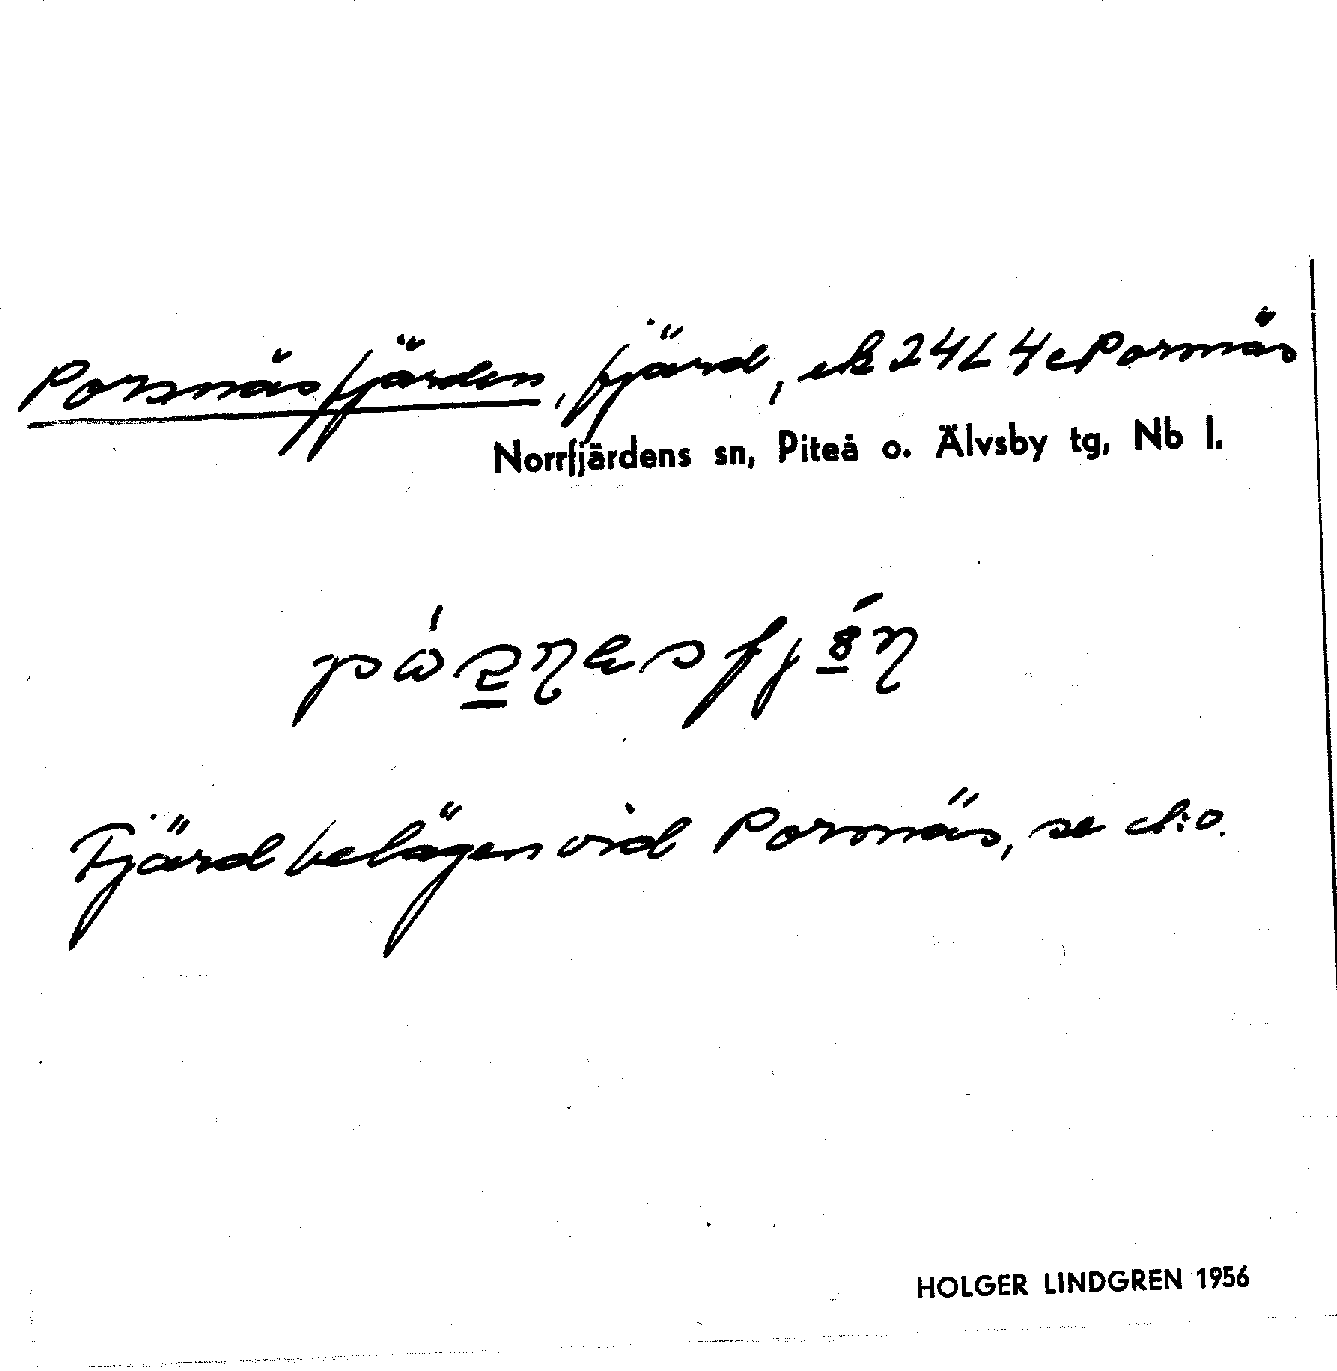 Porsnäsfjärden, fjärd, ek 24L4e Porsnäs
Norrfjärdens sn, Piteå o. Älvsby tg, Nb l.
Fjärd belägen vid Porsnäs, se d:o.
HOLGER LINDGREN 1956